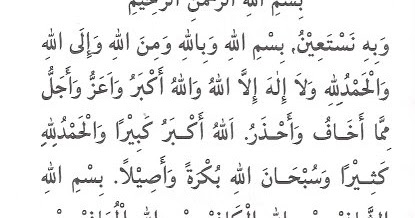 بِسْمِ اللهِ الرَّحْمٰنِ الرَّحِيْمِ
وَبِهِ نَسْتَعِيْنُ, بِسْمِ اللهِ وَبِاللهِ وَمِنَ اللهِ وَإِلَى اللهِ
وَالْحَمْدُلِلهِ وَلاَ إِلٰهَ إِلاَّ اللهُ وَاللهُ أَكْبَرُ وَاَعَزُّ وَأَجَلُّ
مِمَّا أَخَافُ وَأَحْذَرُ. اَللهُ أَكْبَرُ كَبِيْرًا وَالْحَمْدُلِلهِ
كَثِيْرًا وَسُبْحَانَ اللهِ بُكْرَةً وَأَصِيْلاً. بِسْمِ اللهِ